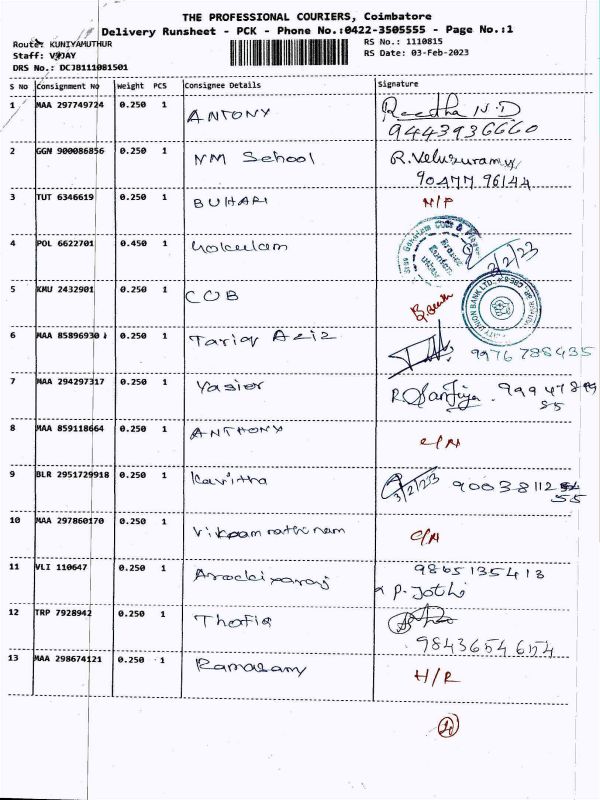 THE PROFESSIONAL COURIERS, Coimbatore
Delivery Runsheet - PCK - Phone No.:0422-3505555 - Page No.:1
Route: KUNIYAMUTHUR RS No.: 1110815
Staff: VIJAY RS Date: 03-Feb-2023
DRS No.: DCJB111081501
S No Consignment No Weight PCS Consignee Details Signature
1 MAA 297749724 0.250 1 ANTONY Reetha N.D
9443936660
2 GGN 900086856 0.250 1 NM School R.Velusuramy
90477 96144
3 TUT 6346619 0.250 1 BUHARI N/P
4 POL 6622701 0.450 1 Gokulam 3/2/23
5 KMU 2432901 0.250 1 CUB
CITY UNION BANK LTD.
6 MAA 85896930 0.250 1 Tariq Aziz 9976788435
7 MAA 294297317 0.250 1 Yasier
8 MAA 859118664 0.250 1 ANTHONY
9 BLR 2951729918 0.250 1 Kavitha 3/2/23 90038112
55
10 MAA 297860170 0.250 1 Vikram rathinam
11 VLI 110647 0.250 1 Arockiyaraj 9865135413
P. Jothi
12 TRP 7928942 0.250 1 Thofiq
9843654654
13 MAA 298674121 0.250 1 Ramasamy H/R